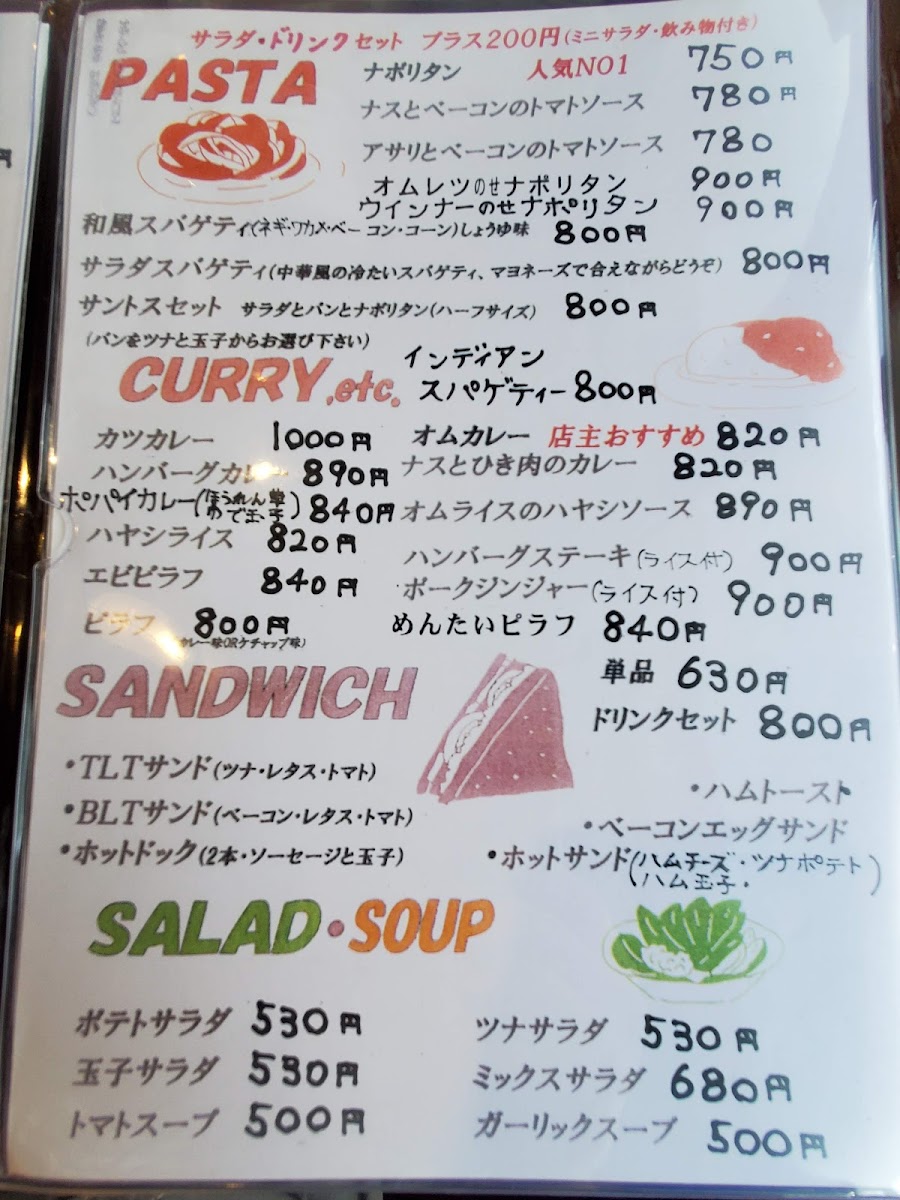 サラダ・ドリンクセット プラス200円(ミニサラダ・飲み物付き)
PASTA
ナポリタン 人気NO1 750円
ナスとベーコンのトマトソース 780円
アサリとベーコンのトマトソース 780
オムレツのせナポリタン 900円
ウインナーのせナポリタン 900円
和風スパゲティ(ネギ・ワカメ・ベーコン・コーン)しょうゆ味 800円
サラダスパゲティ(中華風の冷たいスパゲティ、マヨネーズで合えながらどうぞ) 800円
サントスセット サラダとパンとナポリタン(ハーフサイズ) 800円
(パンをツナと玉子からお選び下さい)
CURRY,etc.
インディアン
スパゲティー 800円
カツカレー 1000円 オムカレー 店主おすすめ 820円
ハンバーグカレー 890円 ナスとひき肉のカレー 820円
ポパイカレー(ほうれん草 ゆで玉子) 840円 オムライスのハヤシソース 890円
ハヤシライス 820円 ハンバーグステーキ(ライス付) 900円
エビピラフ 840円 ポークジンジャー(ライス付) 900円
ピラフ 800円 めんたいピラフ 840円
カレー味ORケチャップ味)
SANDWICH
単品 630円
ドリンクセット 800円
・TLTサンド(ツナ・レタス・トマト)
・ハムトースト
・BLTサンド(ベーコン・レタス・トマト)
・ベーコンエッグサンド
・ホットドック(2本・ソーセージと玉子)
・ホットサンド(ハムチーズ・ツナポテト
ハム玉子・)
SALAD・SOUP
ポテトサラダ 530円 ツナサラダ 530円
玉子サラダ 530円 ミックスサラダ 680円
トマトスープ 500円 ガーリックスープ 500円